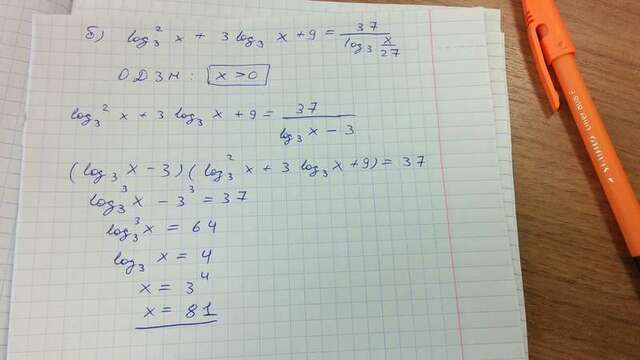 б) log₃² x + 3 log₃ x + 9 = 37 / log₃ x/27
ОДЗН: x > 0
log₃² x + 3 log₃ x + 9 = 37 / log₃ x - 3
(log₃ x - 3)(log₃² x + 3 log₃ x + 9) = 37
log₃³ x - 3³ = 37
log₃³ x = 64
log₃ x = 4
x = 3⁴
x = 81